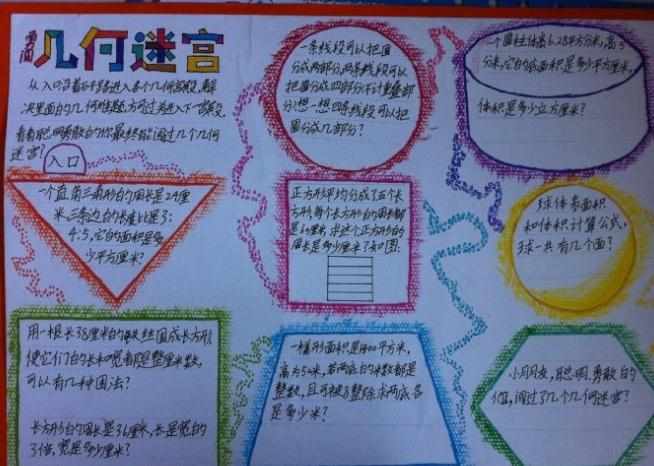 勇闯
几何迷宫
从入口沿着石子路进入各个几何城段,解
决里面的几何难题方可进入下一城段,
看看聪明勇敢的你最终能闯过几个几何
迷宫?
入口
一条线段可以把圆
分成两部分,两条线段可以
把圆分成四部分(不计重叠部
分)想一想四条线段可以把
圆分成几部分?
一个圆柱体高6.28平方分米,高5
分米,它的底面积是多少平方厘米,
体积是多少立方厘米?
一个直角三角形的周长是24厘
米,三条边的长度比是3:
4:5,它的面积是多
少平方厘米?
正方形平均分成了五个长
方形,每个长方形的周长都
是60厘米,求这个正方形的
周长是多少厘米?如图:
球体表面积
和体积计算公式,
球一共有几个面?
用一根长38厘米的铁丝围成长方形,
使它们的长和宽都是整厘米数,
可以有几种围法?
长方形的周长是36厘米,长是宽的
3倍,宽是多少厘米?
一梯形面积是1400平方米,
高为50米,若两底的米数都是
整数,且可被8整除求两底各
是多少米?
小朋友,聪明、勇敢的
你,闯过了几个几何迷宫?